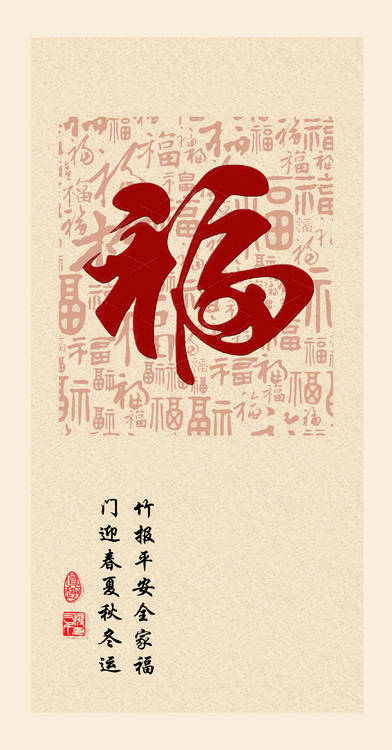 福
竹报平安全家福
门迎春夏秋冬运